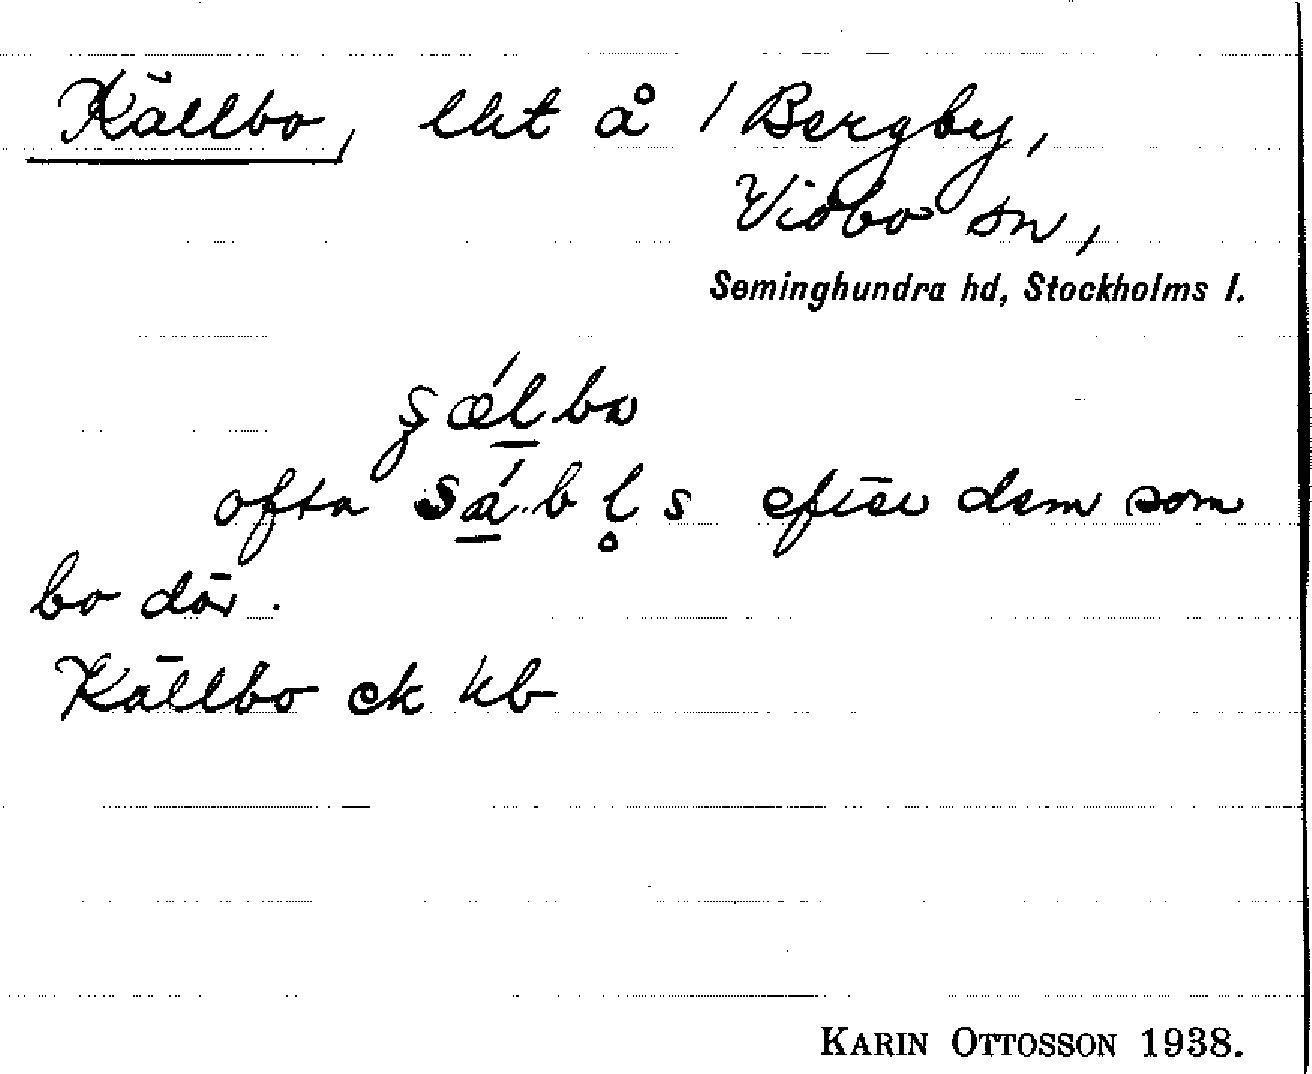 Källbo, lht å 1 Bergby,
Vidbo sn,
Seminghundra hd, Stockholms l.
ofta efter dem som
bo där.
Källbo ek kb
KARIN OTTOSSON 1938.